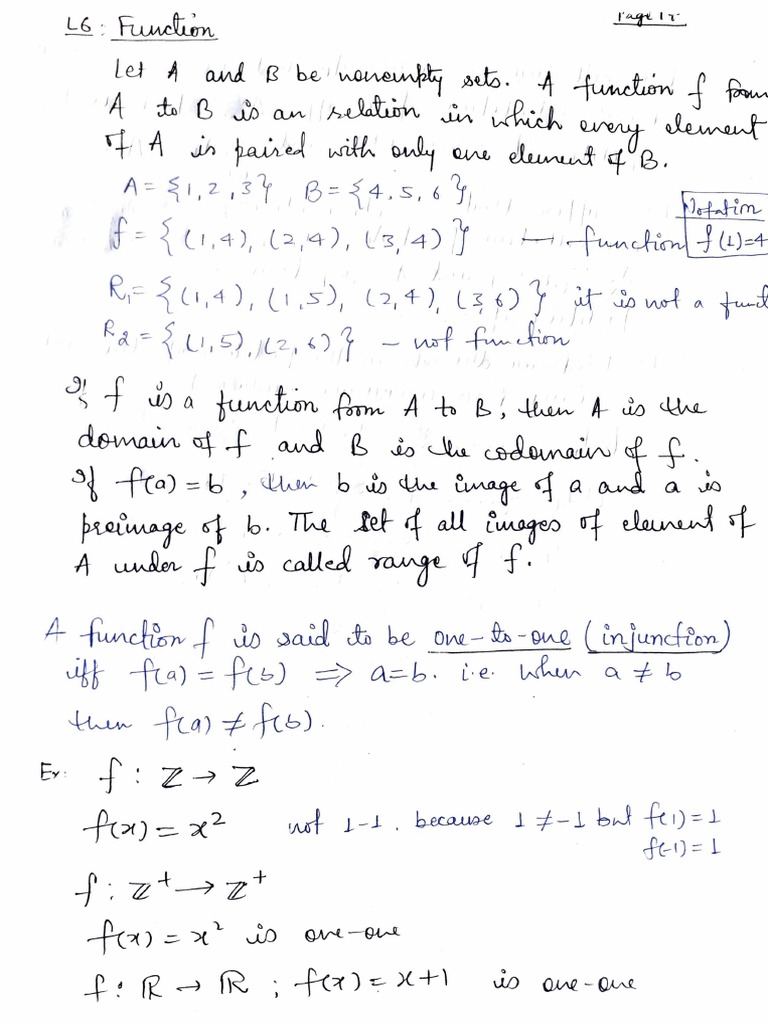 L6 : Function
Page 15
Let A and B be nonempty sets. A function f from
A to B is an relation in which every element
of A is paired with only one element of B.
A = {1, 2, 3} B = {4, 5, 6},
Notation
f = { (1,4), (2,4), (3,4) } — function f(1)=4
R₁ = { (1,4), (1,5), (2,4), (3,6) } it is not a funct
R₂ = { (1,5), (2,6) } – not function
If f is a function from A to B, then A is the
domain of f and B is the codomain of f.
If f(a) = b , then b is the image of a and a is
preimage of b. The set of all images of element of
A under f is called range of f.
A function f is said to be one-to-one (injunction)
iff f(a) = f(b) ⇒ a=b. i.e. when a ≠ b
then f(a) ≠ f(b).
Ex: f : ℤ → ℤ
f(x) = x² not 1-1. because 1 ≠ -1 but f(1) = 1
f(-1) = 1
f : ℤ⁺ → ℤ⁺
f(x) = x² is one-one
f : ℝ → ℝ ; f(x) = x+1 is one-one